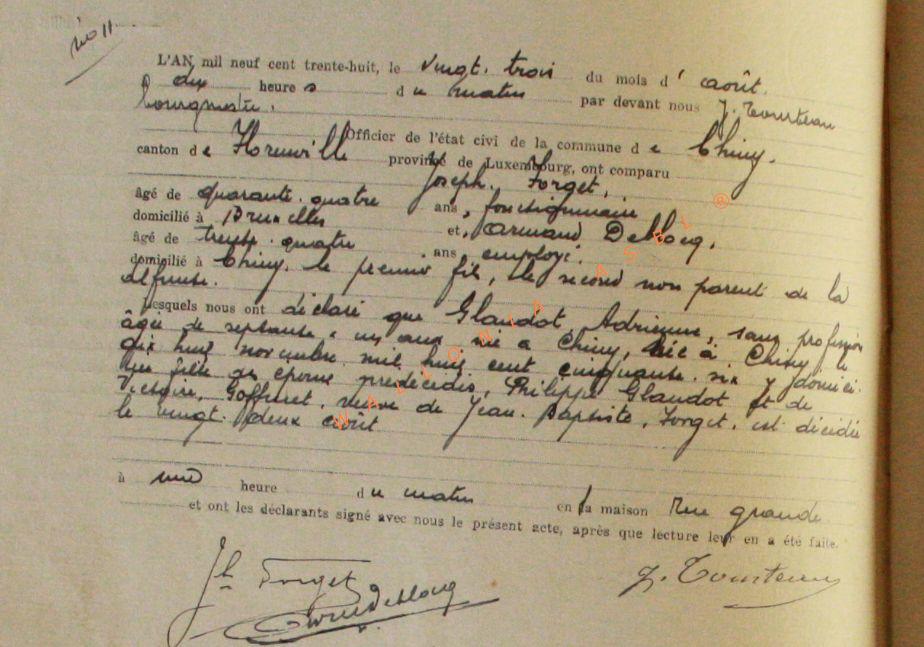 No 11
L'AN mil neuf cent trente-huit, le vingt-trois du mois d' août.
à dix heures du matin par devant nous J. Tourteau
bourgmestre.
Officier de l'état civi de la commune de Chiny.
canton de Florenville province de Luxembourg, ont comparu
Joseph Forget,
âgé de quarante-quatre ans, fonctionnaire
domicilié à Bruxelles et, Armand Deblocq,
âgé de trente-quatre ans employé.
domicilié à Chiny, le premier fils, le second non parent de la
défunte.
Lesquels nous ont déclaré que Glaudot, Adrienne, sans profession
âgée de septante-un ans née à Chiny, le
dix huit novembre mil huit cent cinquante six y domici-
liée fille des époux prédécédés, Philippe Glaudot et de
Victoire, Goffinet, veuve de Jean-Baptiste, Forget, est décédée
le vingt-deux août
à une heure du matin en la maison Rue grande
et ont les déclarants signé avec nous le présent acte, après que lecture leur en a été faite.
Jh Forget
Deblocq
J. Tourteau
WALLONIA ASBL ®